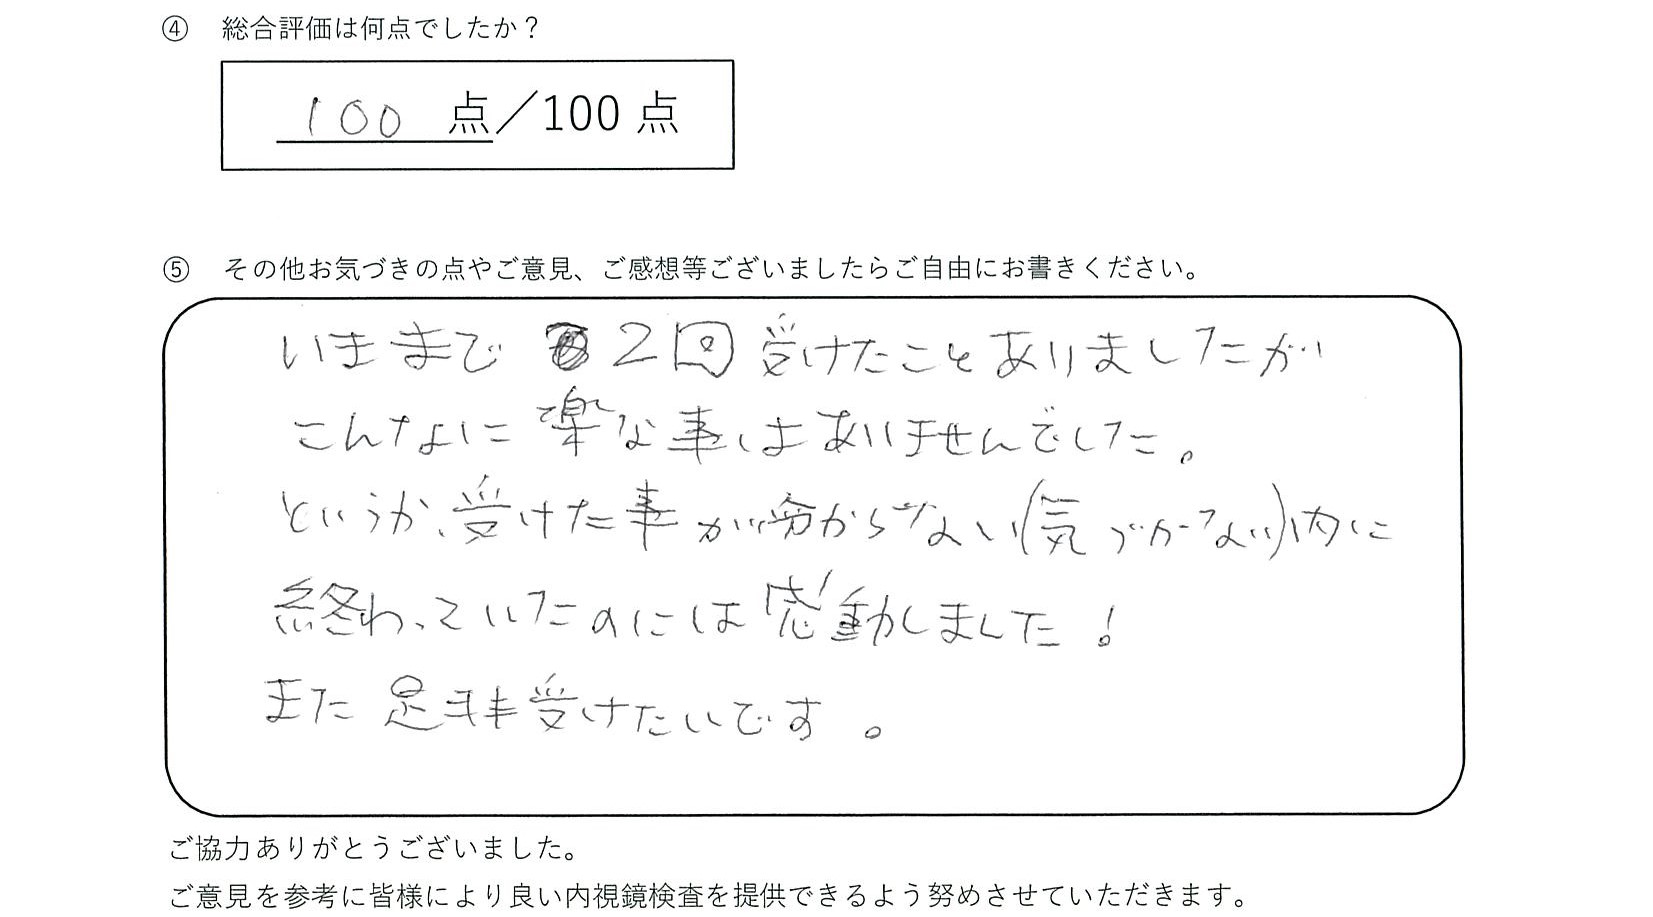 ④ 総合評価は何点でしたか？
100 点／100 点
⑤ その他お気づきの点やご意見、ご感想等ございましたらご自由にお書きください。
いままで 2回 受けたことありましたが
こんなに楽な事はありませんでした。
というか、受けた事が分からない(気づかない)内に
終わっていたのには感動しました！
また是非受けたいです。
ご協力ありがとうございました。
ご意見を参考に皆様により良い内視鏡検査を提供できるよう努めさせていただきます。